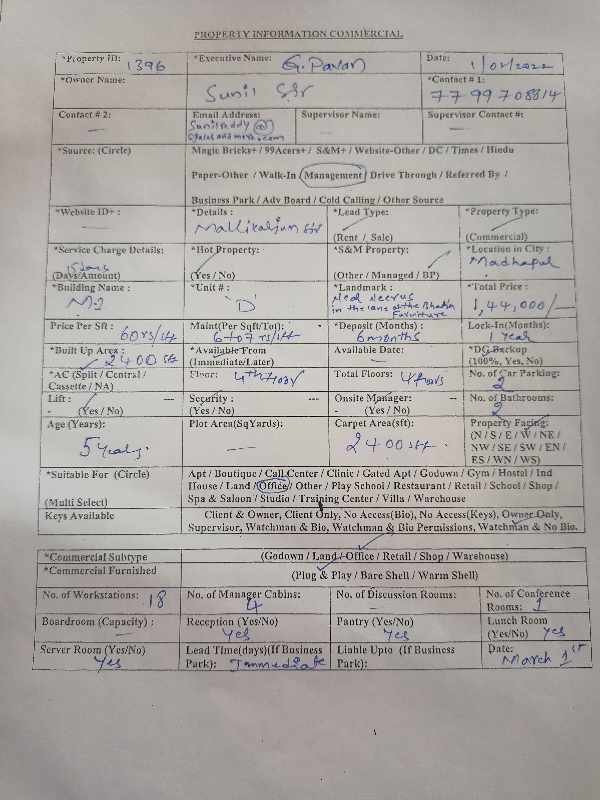 PROPERTY INFORMATION COMMERCIAL
*Property ID: 1396 *Executive Name: G. Pavan Date: 1/02/2022
*Owner Name: Sunil Sir *Contact # 1: 7799708814
Contact # 2: — Email Address: Supervisor Name: — Supervisor Contact #: —
*Source: (Circle) Magic Bricks+ / 99Acers+ / S&M+ / Website-Other / DC / Times / Hindu
Paper-Other / Walk-In / Management / Drive Through / Referred By /
Business Park / Adv Board / Cold Calling / Other Source
*Website ID+ : — *Details : Mallikarjun Sir *Lead Type: (Rent / Sale) *Property Type: (Commercial)
*Service Charge Details: 15 days (Days/Amount) *Hot Property: (Yes / No) *S&M Property: (Other / Managed / BP) *Location in City : Madhapur
*Building Name : *Unit # : 'D' *Landmark : in the lane of the Furniture *Total Price : 1,44,000/-
Price Per Sft : 60 rs/sft Maint(Per Sqft/Tot): 6 to 7 rs/sft *Deposit (Months) : 6 months Lock-In(Months): 1 year
*Built Up Area : 2400 sft *Available From (Immediate/Later) Available Date: — *DG Backup (100%, Yes, No)
*AC (Split / Central / Cassette / NA) Floor: 4th floor Total Floors: 4 floors No. of Car Parking: 2
Lift : --- - (Yes / No) Security : --- - (Yes / No) Onsite Manager: --- - (Yes / No) No. of Bathrooms: 2
Age (Years): 5 years Plot Area(SqYards): --- Carpet Area(sft): 2400 sft Property Facing: (N / S / E / W / NE / NW / SE / SW / EN / ES / WN / WS)
*Suitable For (Circle) Apt / Boutique / Call Center / Clinic / Gated Apt / Godown / Gym / Hostel / Ind
House / Land / Office / Other / Play School / Restaurant / Retail / School / Shop /
(Multi Select) Spa & Saloon / Studio / Training Center / Villa / Warehouse
Keys Available Client & Owner, Client Only, No Access(Bio), No Access(Keys), Owner Only,
Supervisor, Watchman & Bio, Watchman & Bio Permissions, Watchman & No Bio.
*Commercial Subtype (Godown / Land / Office / Retail / Shop / Warehouse)
*Commercial Furnished (Plug & Play / Bare Shell / Warm Shell)
No. of Workstations: 18 No. of Manager Cabins: 4 No. of Discussion Rooms: — No. of Conference Rooms: 1
Boardroom (Capacity) : — Reception (Yes/No) yes Pantry (Yes/No) yes Lunch Room (Yes/No) yes
Server Room (Yes/No) yes Lead Time(days)(If Business Park): Immediate Liable Upto (If Business Park): Date: March 1st